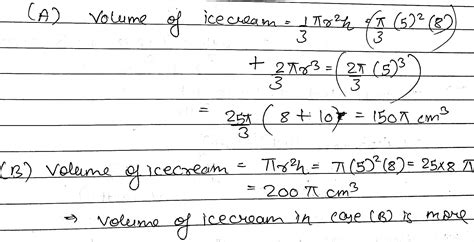 (A) Volume of icecream = 1/3 πr²h = (π/3 (5)² (8))
+ 2/3 πr³ = (2π/3 (5)³)
= 25π/3 (8 + 10) = 150π cm³
(B) Volume of icecream = πr²h = π(5)²(8) = 25×8 π
= 200 π cm³
⇒ Volume of icecream in case (B) is more